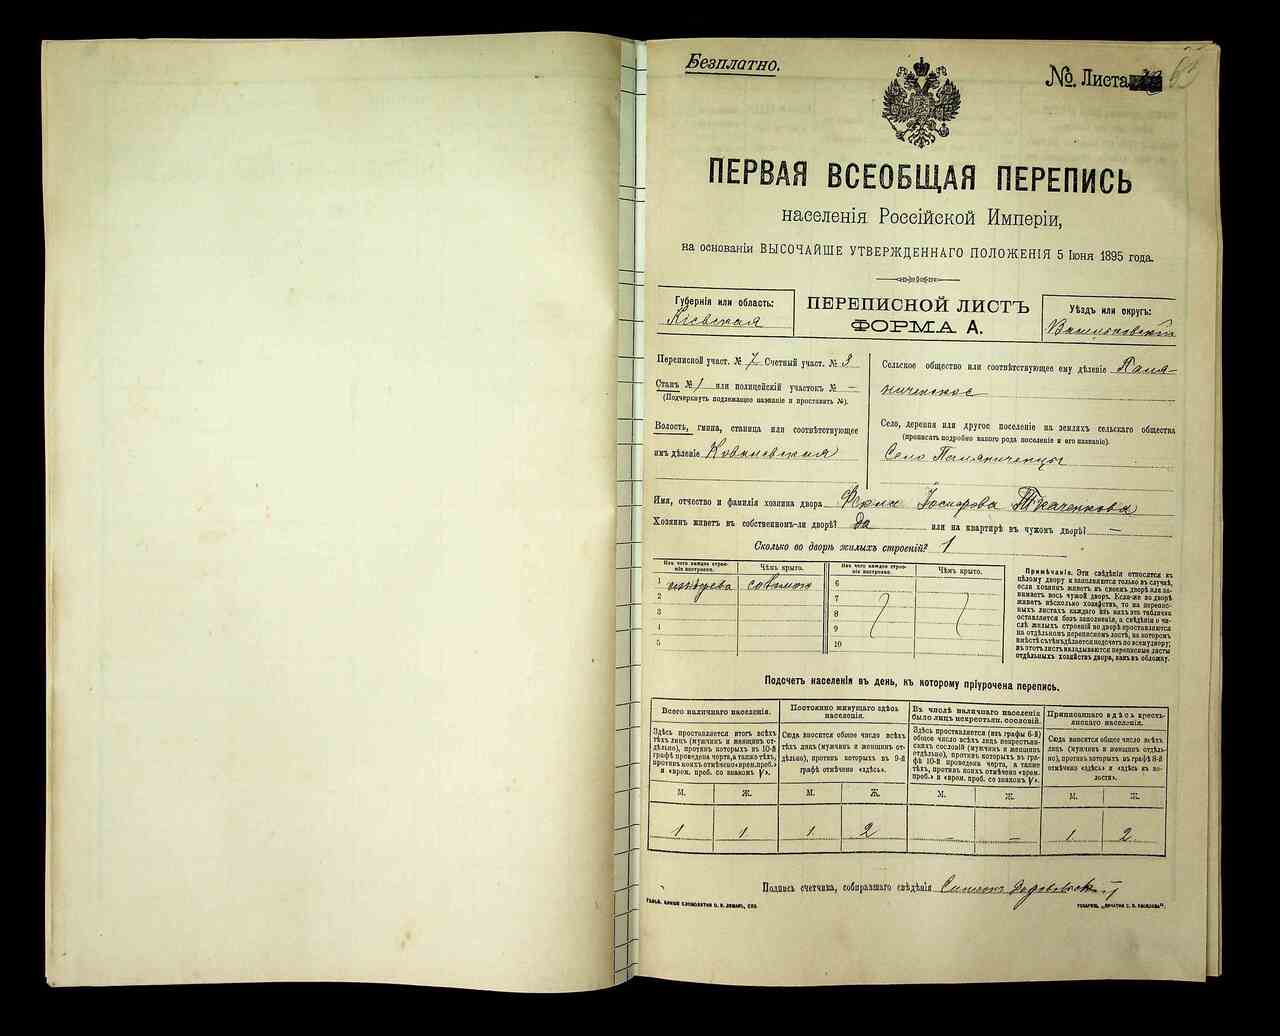 Безплатно.
№ Листа
63
ПЕРВАЯ ВСЕОБЩАЯ ПЕРЕПИСЬ
населенія Россійской Имперіи,
на основаніи ВЫСОЧАЙШЕ УТВЕРЖДЕННАГО ПОЛОЖЕНІЯ 5 Іюня 1895 года.
Губернія или область:
Кіевская
ПЕРЕПИСНОЙ ЛИСТЪ
ФОРМА А.
Уѣздъ или округъ:
Васильковскій
Переписной участ. № 7 Счетный участ. № 3
Станъ № 1 или полицейскій участокъ № —
(Подчеркнуть подлежащее названіе и проставить №).
Волость, гмина, станица или соотвѣтствующее
имъ дѣленіе Ковалевская
Сельское общество или соотвѣтствующее ему дѣленіе Паля-
ниченское
Село, деревня или другое поселеніе на земляхъ сельскаго общества
(прописать подробно какого рода поселеніе и его названіе).
Село Паляниченцы
Имя, отчество и фамилія хозяина двора Іосифова Ткаченкова
Хозяинъ живетъ въ собственномъ-ли дворѣ? да или на квартирѣ въ чужомъ дворѣ? —
Сколько во дворѣ жилыхъ строеній? 1
Изъ чего каждое строе-
ніе построено.
Чѣмъ крыто.
Изъ чего каждое строе-
ніе построено.
Чѣмъ крыто.
1 изъ древа соломою
2
3
4
5
6
7
8
9
10
Примѣчаніе. Эти свѣдѣнія относятся къ
цѣлому двору и заполняются только въ случаѣ,
если хозяинъ живетъ въ своемъ дворѣ или за-
нимаетъ весь чужой дворъ. Если-же во дворѣ
живетъ нѣсколько хозяйствъ, то на перепис-
ныхъ листахъ каждаго изъ нихъ эта табличка
оставляется безъ заполненія, а свѣдѣнія о чи-
слѣ жилыхъ строеній во дворѣ проставляются
на отдѣльномъ переписномъ листѣ, на которомъ
вмѣстѣ съ тѣмъ дѣлается подсчетъ по всему двору;
въ этотъ листъ вкладываются переписные листы
отдѣльныхъ хозяйствъ двора, какъ въ обложку.
Подсчетъ населенія въ день, къ которому пріурочена перепись.
Всего наличнаго населенія.
Здѣсь проставляется итогъ всѣхъ
тѣхъ лицъ (мужчинъ и женщинъ от-
дѣльно), противъ которыхъ въ 10-й
графѣ проведена черта, а также тѣхъ,
противъ коихъ отмѣчено «врем. проб.»
и «врем. проб. со знакомъ V».
Постоянно живущаго здѣсь
населенія.
Сюда вносится общее число всѣхъ
тѣхъ лицъ (мужчинъ и женщинъ от-
дѣльно), противъ которыхъ въ 9-й
графѣ отмѣчено «здѣсь».
Въ числѣ наличнаго населенія
было лицъ некрестьян. сословій.
Здѣсь проставляется (изъ графы 6-й)
общее число всѣхъ лицъ некрестьян-
скихъ сословій (мужчинъ и женщинъ
отдѣльно), противъ которыхъ въ гра-
фѣ 10-й проведена черта, а также
тѣхъ, противъ коихъ отмѣчено «врем.
проб.» и «врем. проб. со знакомъ V».
Приписаннаго здѣсь кресть-
янскаго населенія.
Сюда вносится общее число всѣхъ
лицъ (мужчинъ и женщинъ отдѣль-
но), противъ которыхъ въ графѣ 8-й
отмѣчено «здѣсь» и «здѣсь въ во-
лости».
М. Ж. М. Ж. М. Ж. М. Ж.
1 1 1 2 — — 1 2
Подпись счетчика, собиравшаго свѣдѣнія